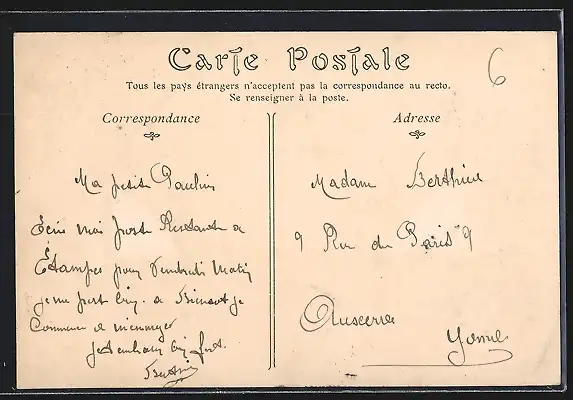 Carte Postale
6
Tous les pays étrangers n'acceptent pas la correspondance au recto.
Se renseigner à la poste.
Correspondance
Ma petite Pauline
Ecris moi poste Restante a
Étampes pour Vendredi Matin
a Bientot je
Commence a m'ennuyer
Je t'embrasse bien fort.
Adresse
Madame Berthier
9 Rue de Paris 9
Auxerre
Yonne